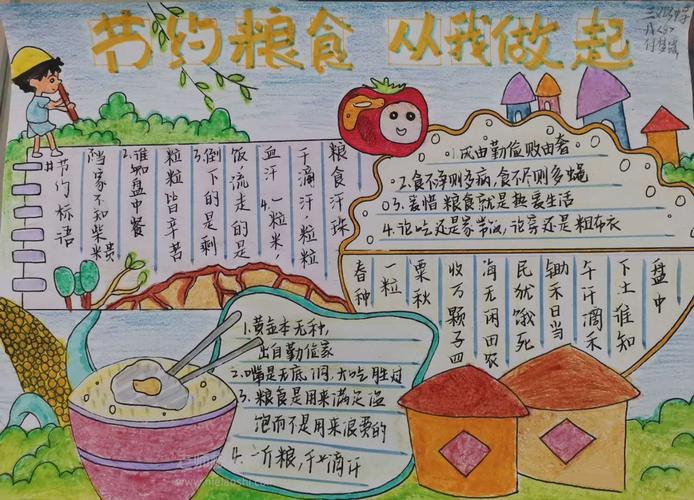 节约粮食 从我做起
#节约标语
当家不知柴米贵
2.谁知盘中餐
粒粒皆辛苦
3.倒下的是剩
饭流走的是
血汗 4.一粒米,
千滴汗,粒粒
粮食汗珠
1.成由勤俭败由奢
2.食不净则多病,食不尽则多蝇
3.爱惜粮食就是热爱生活
4.论吃还是家常饭,论穿还是粗布衣
春种
一粒
粟秋
收万颗子四
海无闲田农
民犹饿死
锄禾日当
午汗滴禾
下土谁知
盘中
1.黄金本无种,
出自勤俭家
2.嘴是无底洞,大吃胜过
3.粮食是用来满足温
饱而不是用来浪费的
4.一斤粮,千滴汗